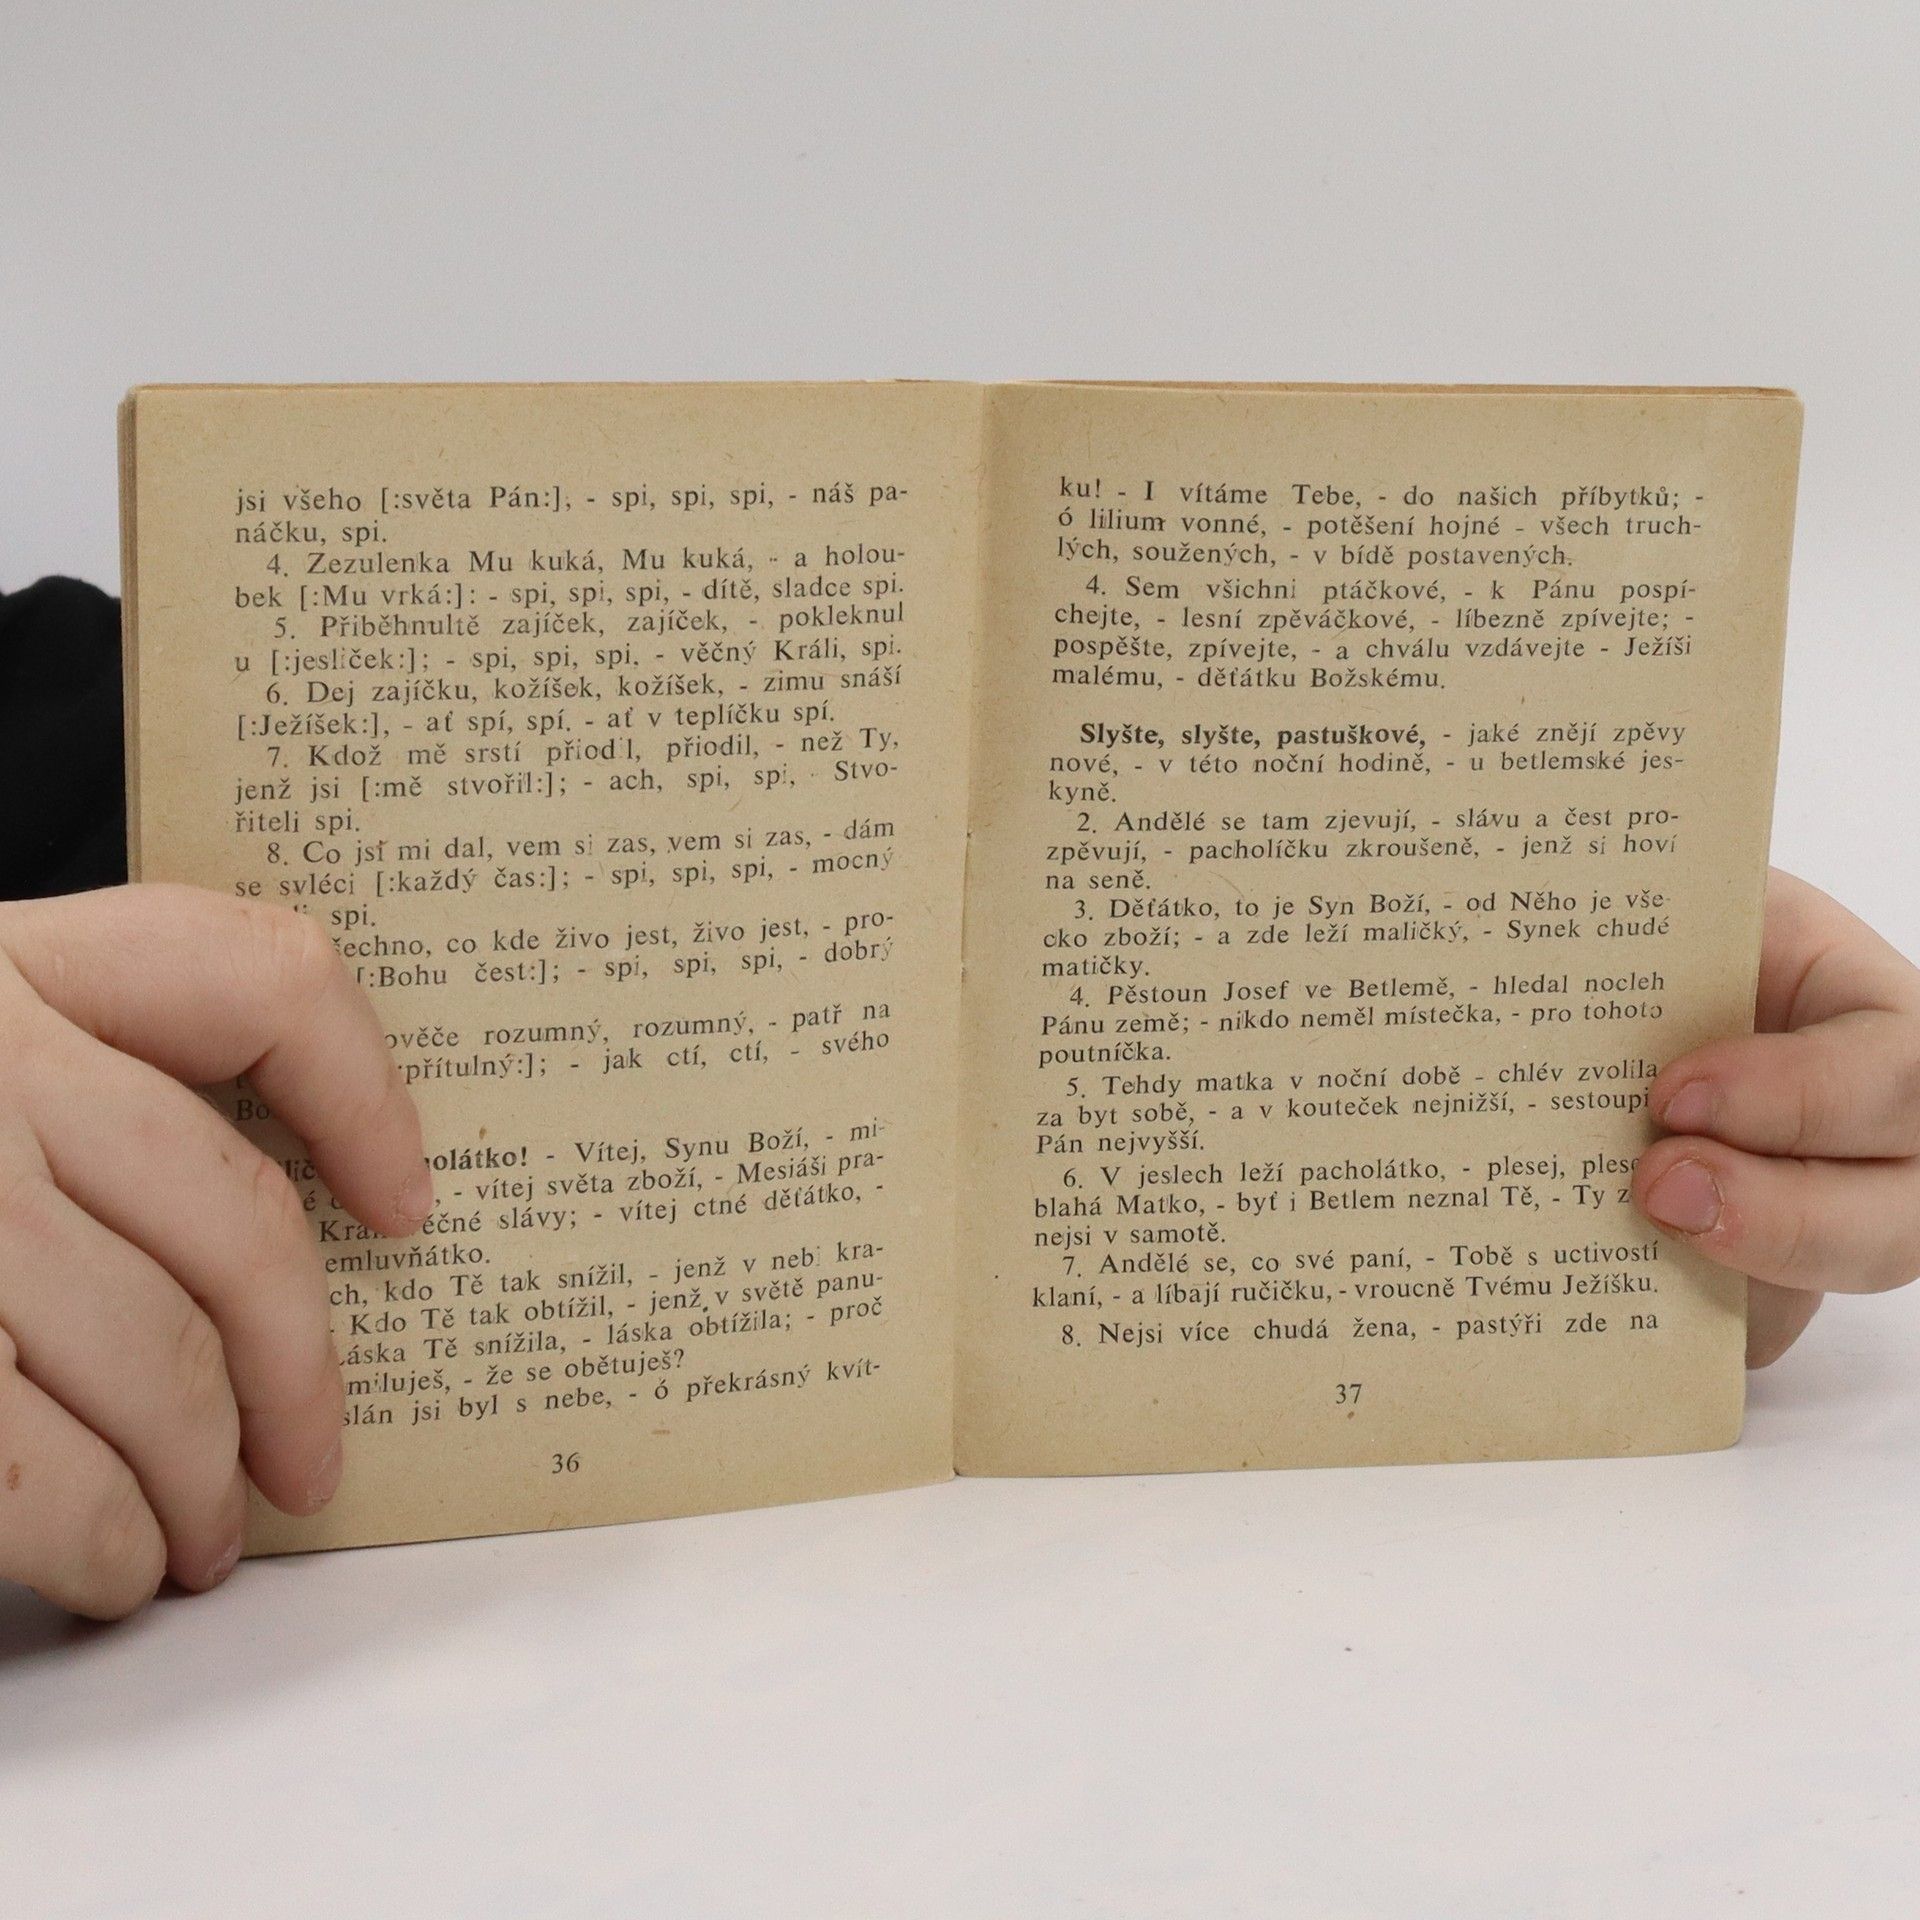 jsi všeho [:světa Pán:], - spi, spi, spi, - náš pa-
náčku, spi.
4. Zezulenka Mu kuká, Mu kuká, - a holou-
bek [:Mu vrká:]: - spi, spi, spi, - dítě, sladce spi.
5. Přiběhnultě zajíček, zajíček, - pokleknul
u [:jesliček:]; - spi, spi, spi, - věčný Králi, spi.
6. Dej zajíčku, kožíšek, kožíšek, - zimu snáší
[:Ježíšek:], - ať spí, spí, - ať v teplíčku spí.
7. Kdož mě srstí přiodil, přiodil, - než Ty,
jenž jsi [:mě stvořil:]; - ach, spi, spi, - Stvo-
řiteli spi.
8. Co jsi mi dal, vem si zas, vem si zas, - dám
se svléci [:každý čas:]; - spi, spi, spi, - mocný
spi.
co kde živo jest, živo jest, - pro-
[:Bohu čest:]; - spi, spi, spi, - dobrý
rozumný, rozumný, - patř na
přítulný:]; - jak ctí, ctí, - svého
- Vítej, Synu Boží, - mi-
- vítej světa zboží, - Mesiáši pra-
slávy; - vítej ctné děťátko, -
kdo Tě tak snížil, - jenž v nebi kra-
- Kdo Tě tak obtížil, - jenž v světě panu-
Tě snížila, - láska obtížila; - proč
miluješ, - že se obětuješ?
jsi byl s nebe, - ó překrásný kvít-
36
ku! - I vítáme Tebe, - do našich příbytků; -
ó lilium vonné, - potěšení hojné - všech truch-
lých, soužených, - v bídě postavených.
4. Sem všichni ptáčkové, - k Pánu pospí-
chejte, - lesní zpěváčkové, - líbezně zpívejte; -
pospěšte, zpívejte, - a chválu vzdávejte - Ježíši
malému, - děťátku Božskému.
Slyšte, slyšte, pastuškové, - jaké znějí zpěvy
nové, - v této noční hodině, - u betlemské jes-
kyně.
2. Andělé se tam zjevují, - slávu a čest pro-
zpěvují, - pacholíčku zkroušeně, - jenž si hoví
na seně.
3. Děťátko, to je Syn Boží, - od Něho je vše-
cko zboží; - a zde leží maličký, - Synek chudé
matičky.
4. Pěstoun Josef ve Betlemě, - hledal nocleh
Pánu země; - nikdo neměl místečka, - pro tohoto
poutníčka.
5. Tehdy matka v noční době - chlév zvolila
za byt sobě, - a v kouteček nejnižší, -
Pán nejvyšší.
6. V jeslech leží pacholátko, - plesej,
blahá Matko, - byť i Betlem neznal Tě, - Ty
nejsi v samotě.
7. Andělé se, co své paní, - Tobě s uctivostí
klaní, - a líbají ručičku, - vroucně Tvému Ježíšku.
8. Nejsi více chudá žena, - pastýři zde na
37